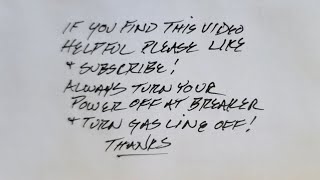 IF YOU FIND THIS VIDEO
HELPFUL PLEASE LIKE
& SUBSCRIBE!
ALWAYS TURN YOUR
POWER OFF AT BREAKER
& TURN GAS LINE OFF!
THANKS